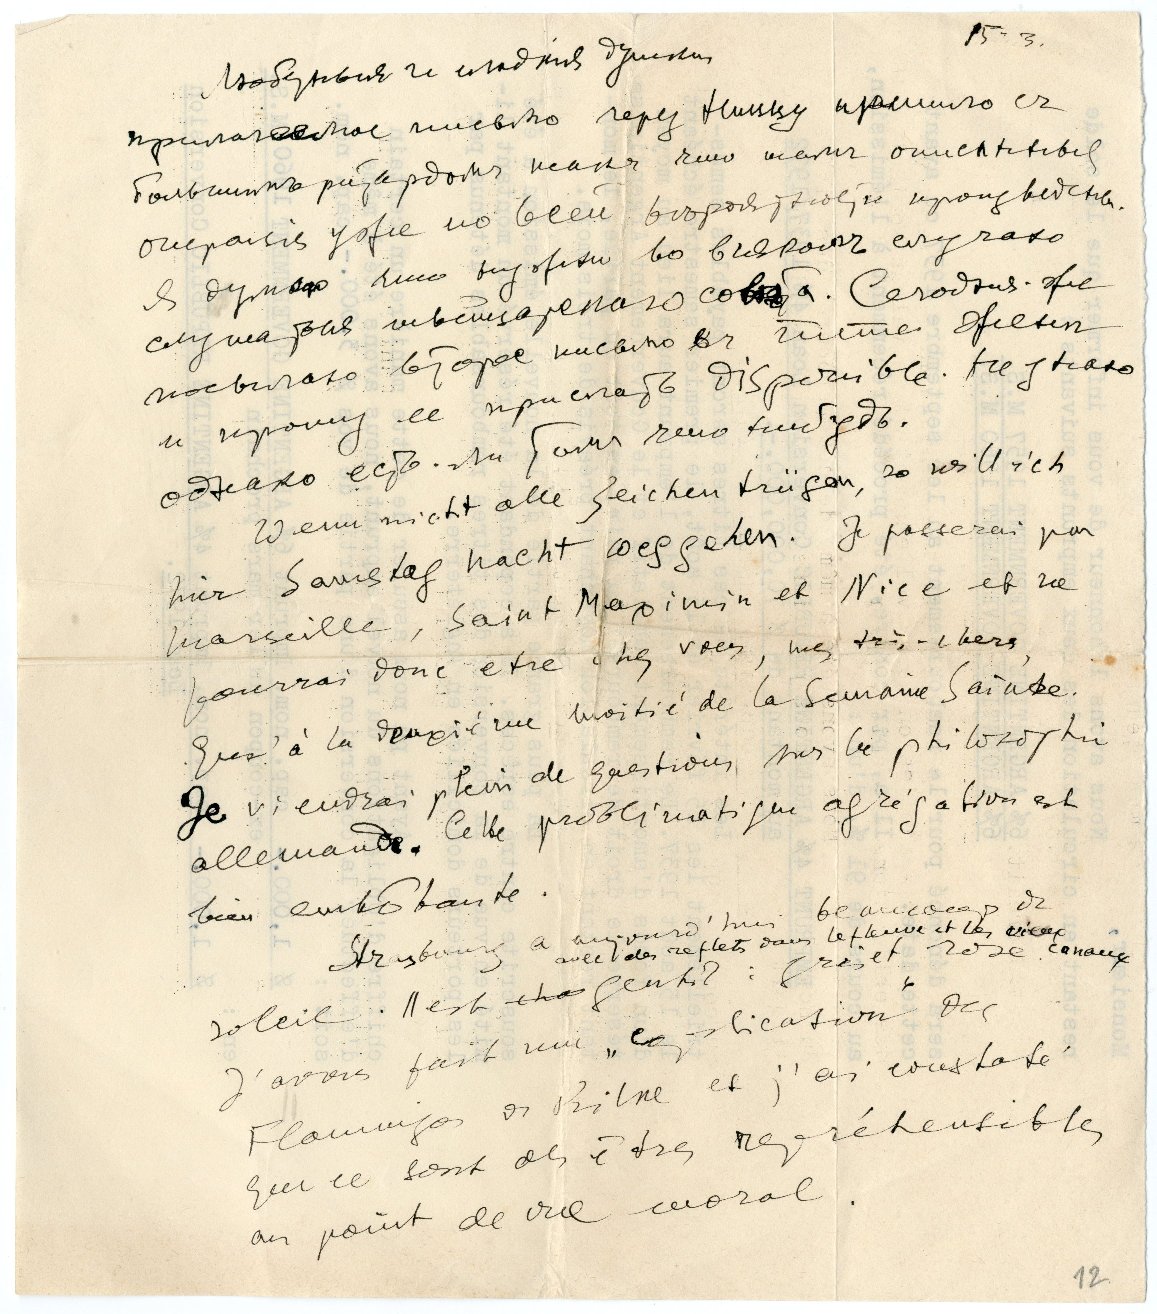 15-3.
Любушья и сладкія душки
письмо через Ниццу пришло съ
большимъ что
операція уже по всей
я думаю что нужно во всякомъ случаѣ
слушать швейцарскаго совѣта. Сегодня-же
посылаю второе письмо въ
и прошу ее прислать disponible. Не знаю
однако есть-ли тамъ что нибудь.
Wenn nicht alle Zeichen trügen, so will ich
hier Samstag Nacht weggehen. Je passerai par
Marseille, Saint Maximin et Nice et ne
pourrai donc etre chez vous, mes très-chers,
qu'à la deuxiéme moitié de la Semaine Sainte.
Je viendrai plein de questions sur la philosophie
allemande. Cette problématique agrégation est
bien embêtante.
Strasbourg a aujourd'hui beaucoup de
avec des reflets dans le fleuve et les vieux canaux
soleil. Il est gentil: gris et rose.
J'avais fait une „explication" des
Flamingos de Rilke et j'ai constaté
que ce sont des êtres repréhensibles
au point de vue moral.
12